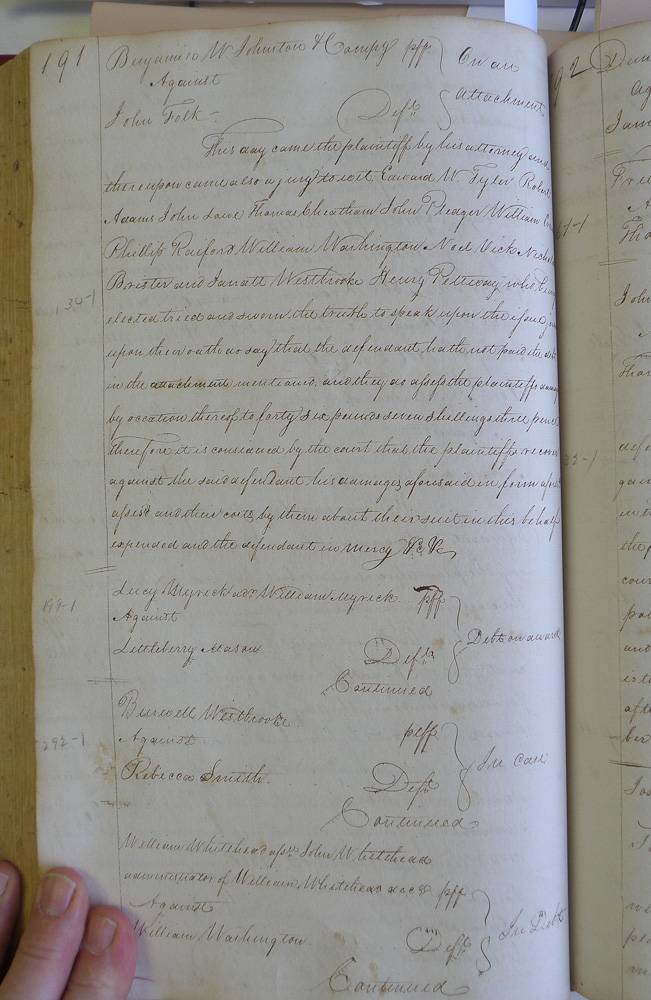 191
Benjamin W Johnston & Compy plff
On an
Against
attachment
John Folk
Deft
This day came the plaintiff by his attorney and
thereupon came also a jury to wit Edward W Tyler Robert
Adams John Lane Thomas Cheatham John Pledger William
Phillip Raiford William Washington Noel Vick
Brister and Jarratt Westbrooke Henry Pettway who being
elected tried and sworn the truth to speak upon the issue
upon their oath do say that the defendant hath not paid the debt
in the attachment mentioned and they do assess the plaintiffs damages
by occation thereof to forty six pounds seven shillings three pence
therefore it is considered by the court that the plaintiffs recover
against the said defendant his damages aforesaid in form afores
assesd and their costs by them about their suit in this behalf
expended and the defendant in mercy &c &c
34-1
199-1
Lucy Myrick adx William Myrick plff
Against
Debt on award
Littleberry Mason
Deft
Continued
292-1
Burwell Westbrooke
plff
Against
In case
Rebecca Smith
Deft
Continued
William Whitehead assee John Whitehead
administrator of William Whitehead decd plff
Against
In Debt
William Washington
Deft
Continued
92
32-1